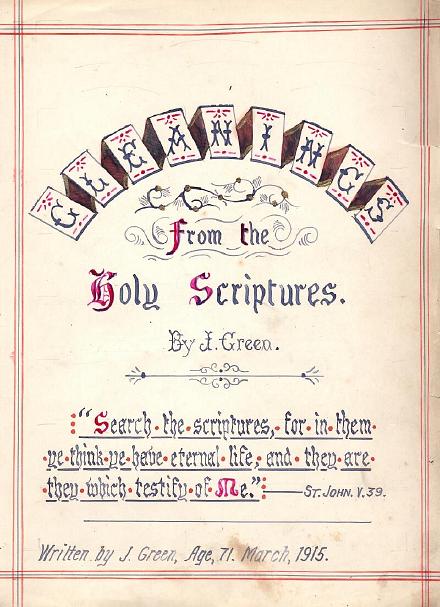 GLEANINGS
From the
Holy Scriptures.
By J. Green.
"Search the scriptures, for in them
ye think ye have eternal life, and they are
they which testify of Me." — ST. JOHN. V. 39.
Written by J. Green, Age, 71. March, 1915.